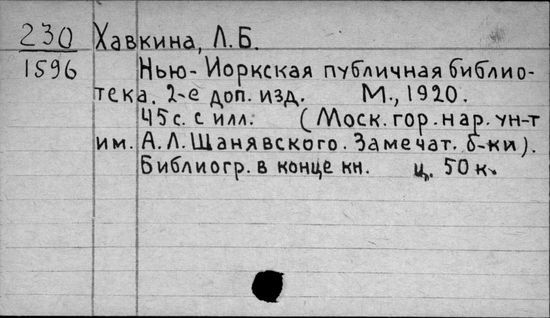 230 Хавкина, Л.Б.
1596 Нью-Йоркская публичная библио-
тека. 2-е доп. изд. М., 1920.
45 с. с илл. (Моск. гор. нар. ун-т
им. А.Л. Шанявского. Замечат. б-ки).
Библиогр. в конце кн. ц. 50 к.